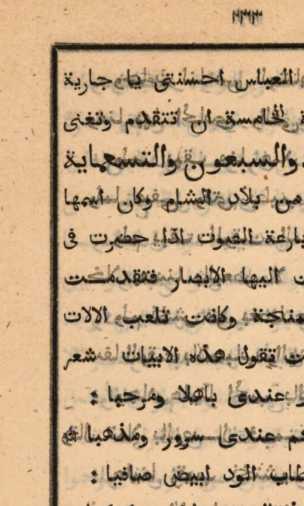 ٢٣٣
العباس احسنتى يا جارية
الخامسة ان تتقدم وتغنى
والسبعون والتسعماية
من بلاد الشام وكان اسمها
بارعة الصوت اذا حضرت فى
اليها الابصار فتقدمت
وكانت تلعب الالات
تقول هذه الابيات شعر
عندى باهلا ومرحبا :
عندى سرور ومذهبا
الود ابيض صافيا :